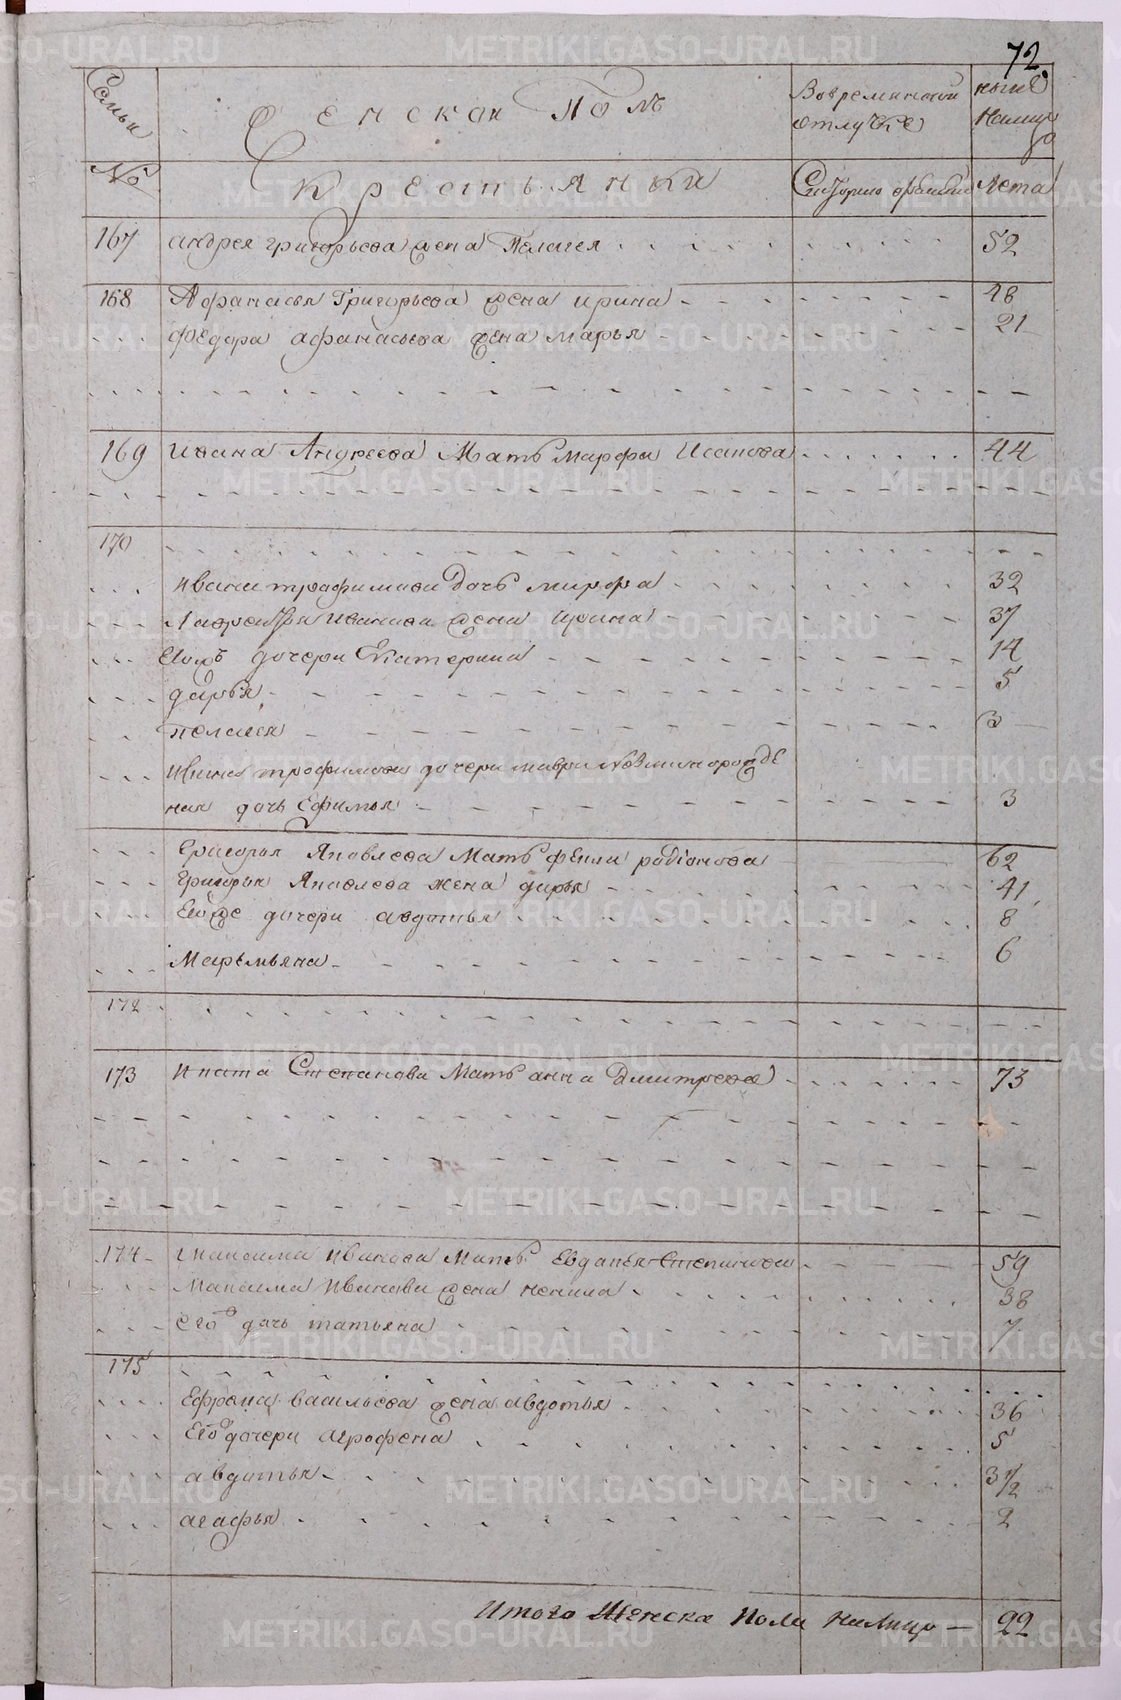 72
Семьи
Женскои Полъ
Вовременной
отлучке
ныне
налицо
№
Крестьянки
Скотораго времени
Лета
167 андрея григорьева жена Пелагея 52
168 Афанасья Григорьева жена ирина 48
федора афанасьева жена марья 21
169 Ивана Андреева Мать Марфа Исакова 44
170
Ивана трофимова Дочь марфа 32
Ивана жена Ирина 37
Ихъ дочери Екатерина 14
дарья 5
пелагея 3
Ивана трофимова дочери мавры незаконорожде
ная дочь Ефимья 3
Григорья Яковлева Мать фекла родионова 62
Григорья Яковлева жена дарья 41
Егоже дочери авдотья 8
Маремьяна 6
172
173 Ипата Степанова Мать анна Дмитрева 73
174 Максима Иванова Мать Евдокья Степанова 59
Максима Иванова жена ненила 38
его дочь татьяна 7
175
Ефрема васильева жена авдотья 36
Его дочери Агрофена 5
авдотья 3 1/2
агафья 2
Итого Женска Пола налицо — 22
METRIKI.GASO-URAL.RU